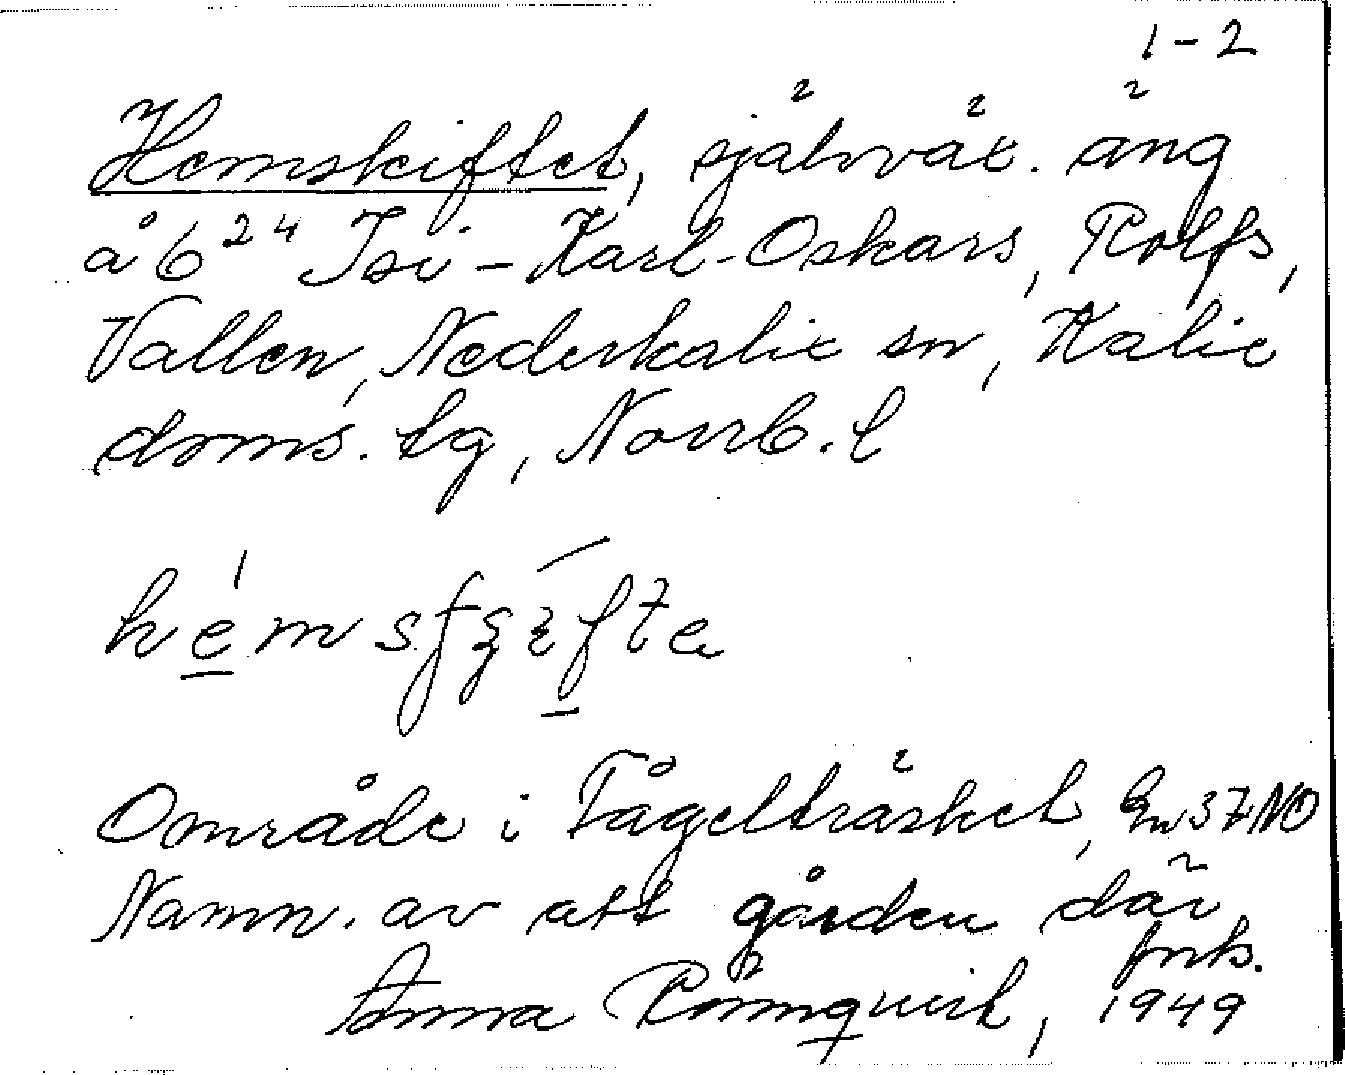 1-2
Hemskiftet, självväx. äng
å 6²⁴ Isi-Karl-Oskars, Rolfs,
Vallen, Nederkalix sn, Kalix
doms. tg, Norrb. l
Område i Fågelträsket, 37 NO
Namn. av att gården där
fnts.
Anna Römquist, 1949